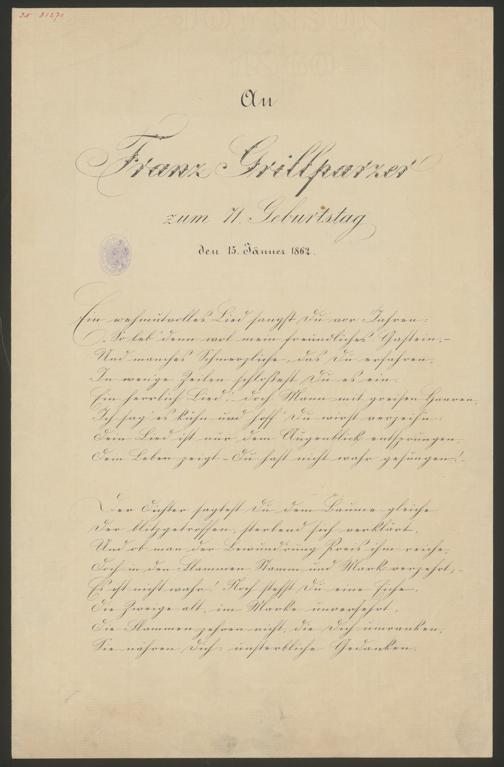 An
Franz Grillparzer
zum 71. Geburtstag
den 15. Jänner 1862.
Ein wehmutvolles Lied sangst Du vor Jahren:
„So leb' denn wol mein freundliches Gastein,"
Und manches Schmerzliche, das Du erfahren,
In wenige Zeilen schloßest Du es ein.
Ein herrlich Lied! – doch Mann mit greisen Haaren,
Ich sag' es kühn und hoff' Du wirst verzeih'n:
Dem Lied ist nur dem Augenblick entsprungen,
Dem Leben zeigt – Du hast nicht wahr gesungen! –
Der Dichter sagtest Du dem Baume gleiche
Der blitzgetroffen, sterbend sich verklärt,
Und ob man der Bewundrung Preis ihm reiche,
Doch in den Flammen Stamm und Mark verzehrt, –
Es ist nicht wahr! Noch stehst Du eine Eiche,
Die Zweige alt, im Marke unversehrt,
Die Flammen zehren nicht, die Dich umranken,
Sie nähren Dich, unsterbliche Gedanken.